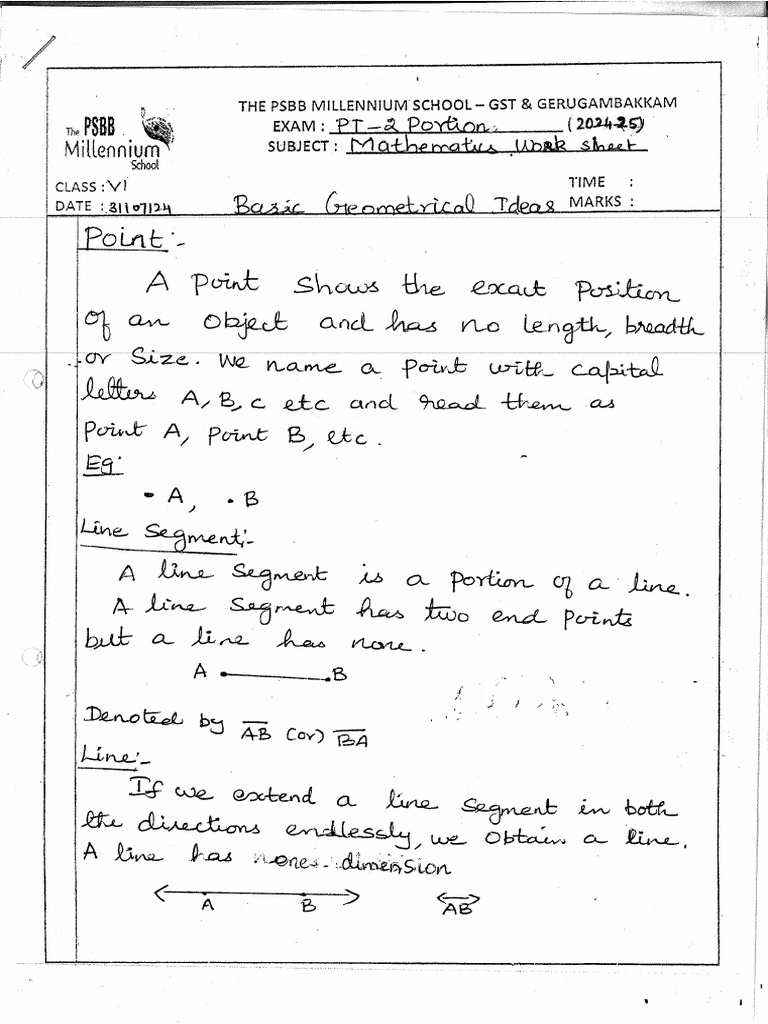 THE PSBB MILLENNIUM SCHOOL – GST & GERUGAMBAKKAM
The PSBB Millennium School
EXAM : PT-2 Portion (2024-25)
SUBJECT : Mathematics Work sheet
CLASS : VI
TIME :
DATE : 31/07/24
Basic Geometrical Ideas
MARKS :
Point:-
A point shows the exact position
of an object and has no length, breadth
or size. We name a point with capital
letters A, B, C etc and read them as
point A, point B, etc.
Eg:
• A, • B
Line Segment:-
A line segment is a portion of a line.
A line segment has two end points
but a line has none.
A B
Denoted by A̅B̅ (or) B̅A̅
Line:-
If we extend a line segment in both
the directions endlessly, we obtain a line.
A line has one dimension
A B
AB